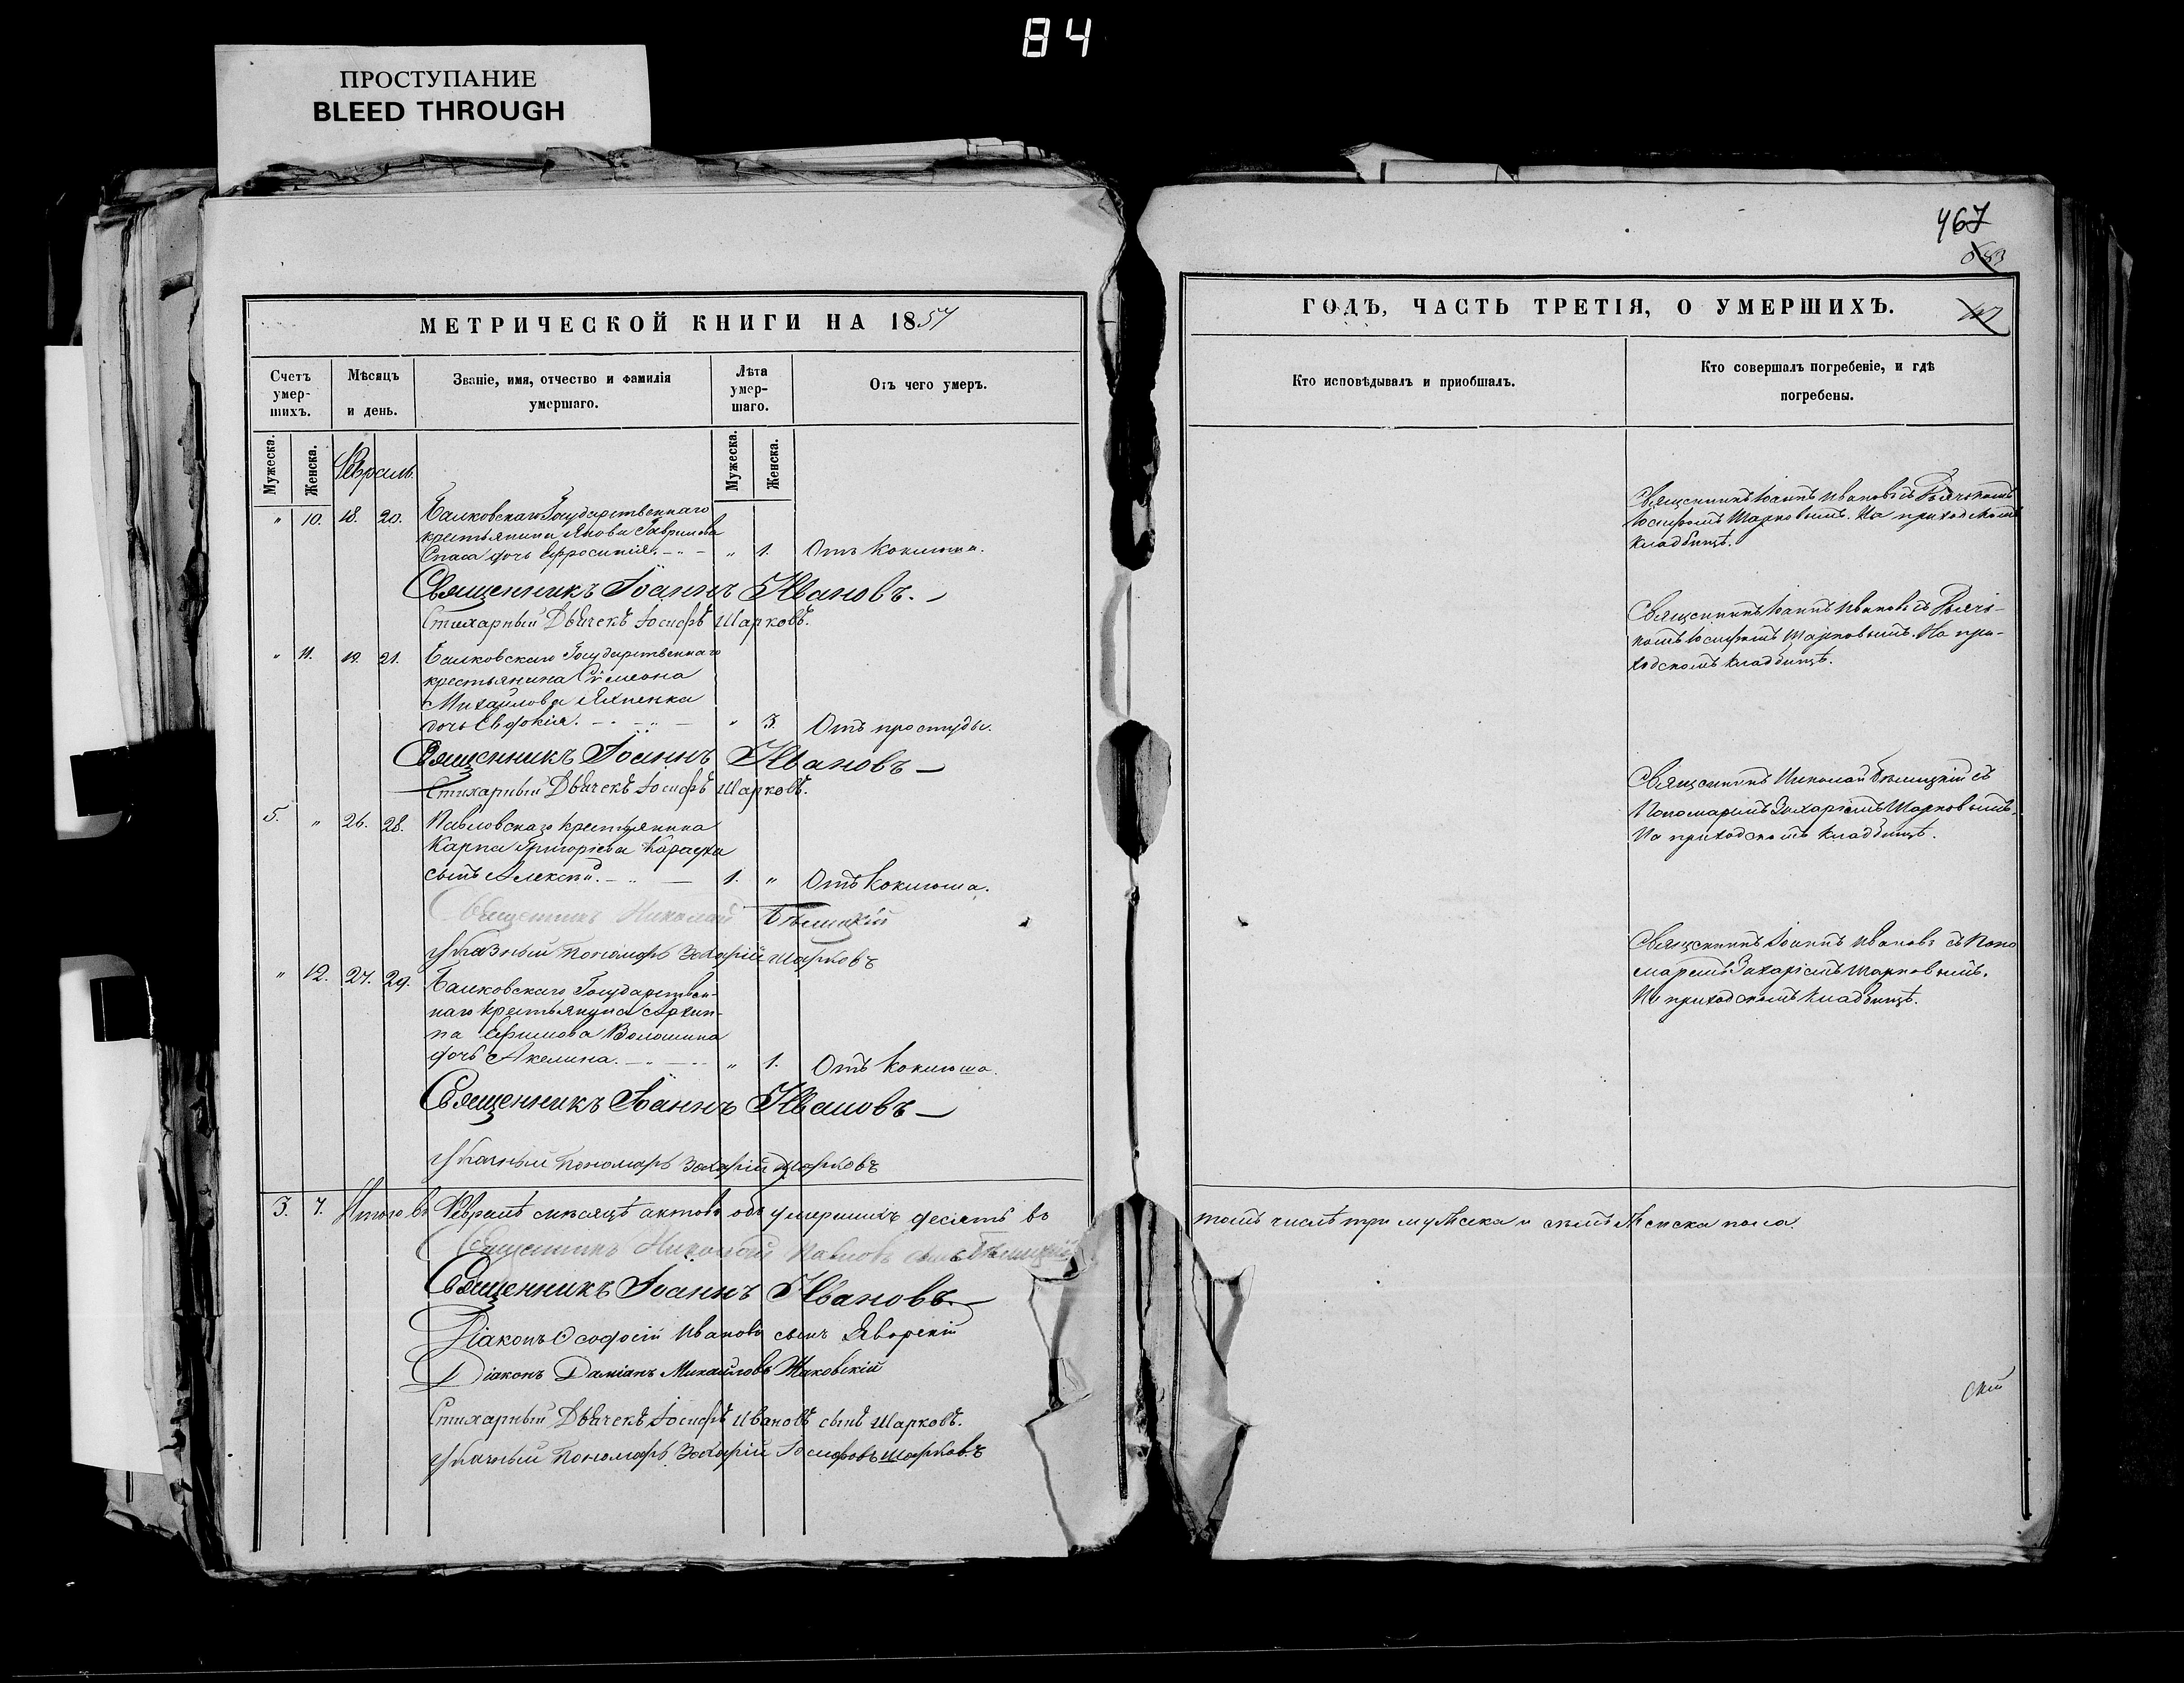 84
ПРОСТУПАНИЕ
BLEED THROUGH
МЕТРИЧЕСКОЙ КНИГИ НА 1857
Счетъ умер-шихъ.
Мѣсяцъ и день.
Званіе, имя, отчество и фамилія умершаго.
Лѣта умер-шаго.
Отъ чего умеръ.
Мужеска.
Женска.
Мужеска.
Женска.
Февраль.
" 10. 18. 20. Балковскаго Государственнаго
крестьянина Якова Гаврилова
Спаса дочь Ефросинія. " 1. Отъ коклюша.
Священникъ Іоаннъ Ивановъ.
Стихарный Дьячекъ Іосифъ Шарковъ.
" 11. 19. 21. Балковскаго Государственнаго
крестьянина Сѵмеона
Михайлова
дочь Евдокія. " 3 Отъ простуды.
Священникъ Іоаннъ Ивановъ
Стихарный Дьячекъ Іосифъ Шарковъ.
5. " 26. 28. Павловскаго крестьянина
Карпа Григоріева
сынъ Алексій. 1. " Отъ коклюша.
Священникъ Николай Бѣлицкій
Указный Пономарь Захарій Шарковъ
" 12. 27. 29. Балковскаго Государствен-
наго крестьянина Архип-
па Ефимова Волошина
дочь Акелина. " 1. Отъ коклюша.
Священникъ Іоаннъ Ивановъ
Указный Пономарь Захарій Шарковъ
3. 7. Итого въ Февралѣ мѣсяцѣ актовъ объ умершихъ десять въ
Священникъ Николай Павловъ сынъ Бѣлицкій
Священникъ Іоаннъ Ивановъ
Діаконъ Ѳеодосій Ивановъ сынъ Яворскій
Діаконъ Даміанъ Михайловъ Жаковскій
Стихарный Дьячекъ Іосифъ Ивановъ сынъ Шарковъ.
Указный Пономарь Захарій Іосифовъ Шарковъ
467
ГОДЪ, ЧАСТЬ ТРЕТІЯ, О УМЕРШИХЪ.
Кто исповѣдывалъ и пріобщалъ.
Кто совершалъ погребеніе, и гдѣ
погребены.
Священникъ Іоаннъ Ивановъ съ Дьячкомъ
Іосифомъ Шарковымъ. На приходскомъ
кладбищѣ.
Священникъ Іоаннъ Ивановъ съ Дьяч-
комъ Іосифомъ Шарковымъ. На при-
ходскомъ кладбищѣ.
Священникъ Николай Бѣлицкій съ
Пономаремъ Захаріемъ Шарковымъ.
На приходскомъ кладбищѣ.
Священникъ Іоаннъ Ивановъ съ Поно
маремъ Захаріемъ Шарковымъ.
На приходскомъ кладбищѣ.
томъ числѣ три мужеска и семь женска пола.
скій